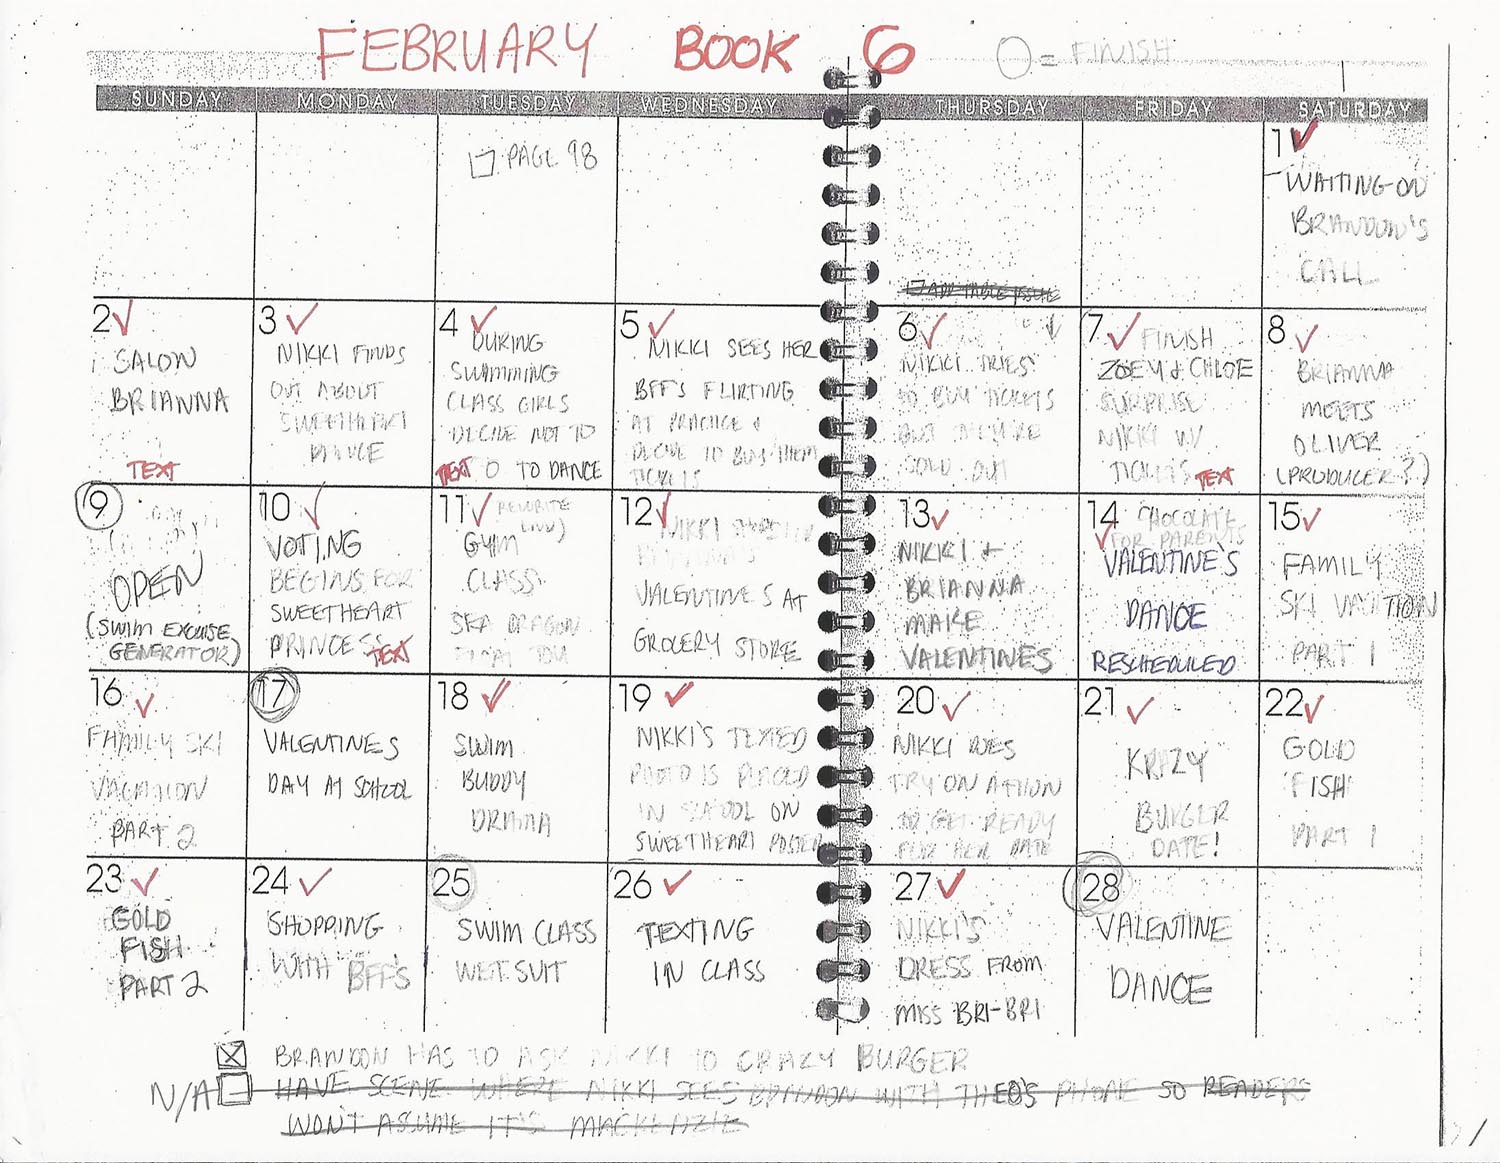 FEBRUARY BOOK 6 O = FINISH
SUNDAY MONDAY TUESDAY WEDNESDAY THURSDAY FRIDAY SATURDAY
PAGE 98
1
WAITING ON
BRANDON'S
CALL
2
SALON
BRIANNA
TEXT
3
NIKKI FINDS
OUT ABOUT
SWEETHEART
DANCE
4
DURING
SWIMMING
CLASS GIRLS
DECIDE NOT TO
TEXT O TO DANCE
5
NIKKI SEES HER
BFF'S FLIRTING
AT PRACTICE &
DECIDE TO BUY THEM
TICKETS
6
NIKKI TRIES
TO BUY TICKETS
BUT THEY'RE
SOLD OUT
7 FINISH
ZOEY & CHLOE
SURPRISE
NIKKI W/
TICKETS TEXT
8
BRIANNA
MEETS
OLIVER
(PRODUCER?)
9
OPEN
(SWIM EXCUSE
GENERATOR)
10
VOTING
BEGINS FOR
SWEETHEART
PRINCESS TEXT
11 REWRITE
GYM
CLASS
SKA DRAGON
12
NIKKI
VALENTINE'S AT
GROCERY STORE
13
NIKKI +
BRIANNA
MAKE
VALENTINES
14 CHOCOLATE
FOR PARENTS
VALENTINE'S
DANCE
RESCHEDULED
15
FAMILY
SKI VACATION
PART 1
16
FAMILY SKI
VACATION
PART 2
17
VALENTINES
DAY AT SCHOOL
18
SWIM
BUDDY
DRAMA
19
NIKKI'S TEXTED
PHOTO IS PLACED
IN SCHOOL ON
SWEETHEART POSTER
20
NIKKI DOES
TRY ON ATHON
TO GET READY
FOR HER DATE
21
KRAZY
BURGER
DATE!
22
GOLD
FISH
PART 1
23
GOLD
FISH
PART 2
24
SHOPPING
WITH BFF'S
25
SWIM CLASS
WET SUIT
26
TEXTING
IN CLASS
27
NIKKI'S
DRESS FROM
MISS BRI-BRI
28
VALENTINE
DANCE
BRANDON HAS TO ASK NIKKI TO CRAZY BURGER
N/A HAVE SCENE WHERE NIKKI SEES BRANDON WITH THEO'S PHONE SO READERS
WON'T ASSUME IT'S MACKENZIE